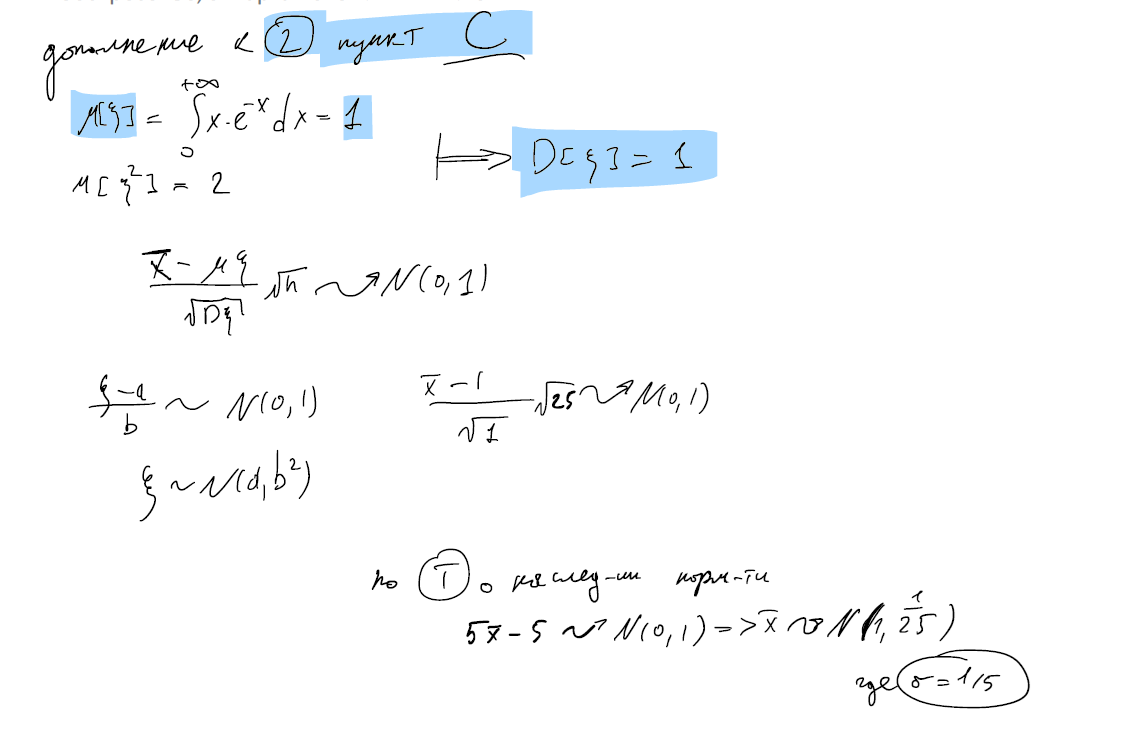 дополнение к ② пункт C
M[ξ] = ∫₀^{+∞} x·e^{-x} dx = 1
M[ξ²] = 2
|⟹ D[ξ] = 1
(x̄ - Mξ)/√Dξ √n ⤳ N(0,1)
(ξ-a)/b ~ N(0,1)
(x̄ - 1)/√1 √25 ⤳ N(0,1)
ξ ~ N(a, b²)
по Ⓣ о наслед-ии норм-ти
5x̄ - 5 ⤳ N(0,1) => x̄ ~ N(1, 1/25)
где σ = 1/5